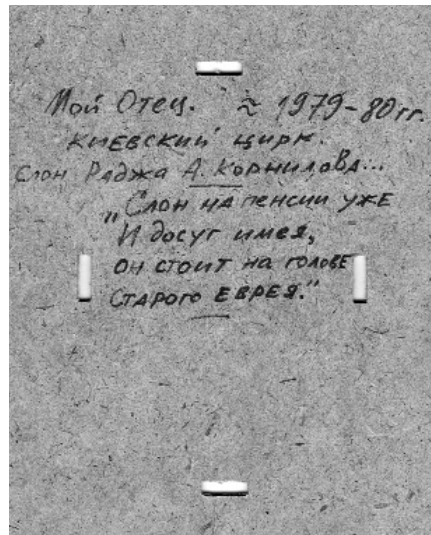 Мой Отец. ≈ 1979-80 гг.
Киевский цирк.
Слон Раджа А. Корнилова...
„Слон на пенсии уже
И досуг имея,
он стоит на голове
Старого еврея."